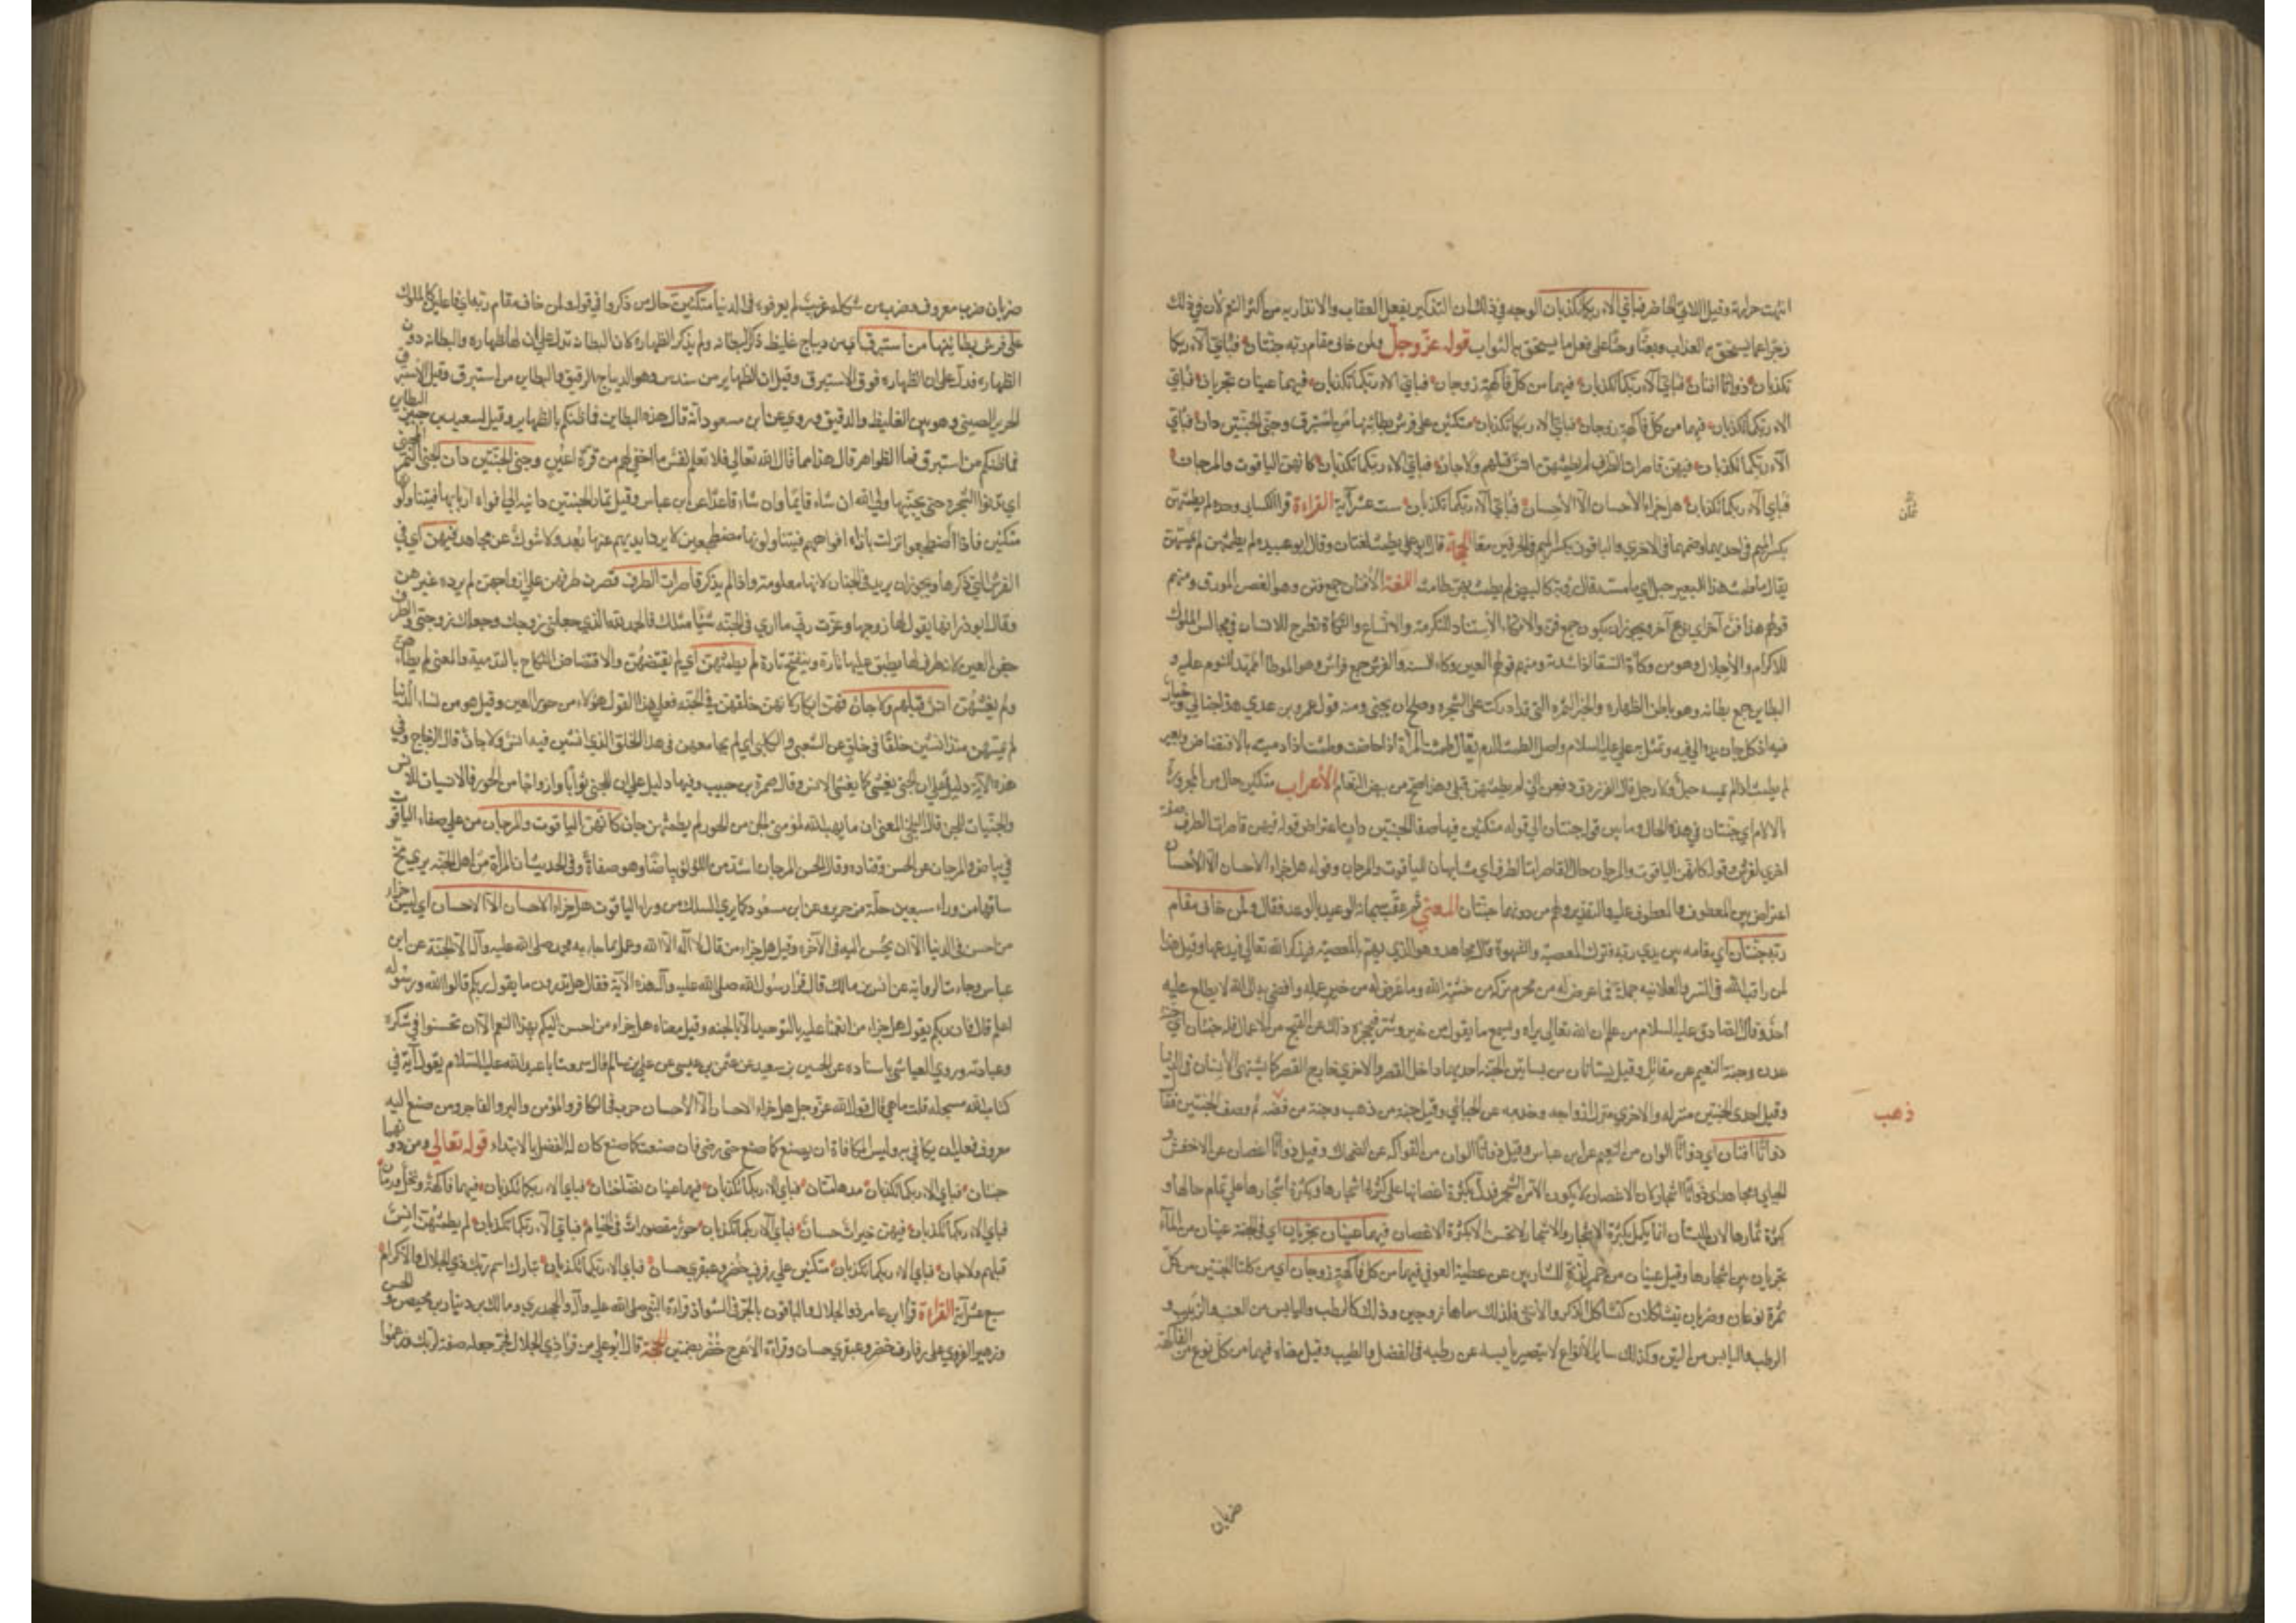 انتهت حرارته وقيل اللاتي الحاضر فباي الاء ربكما تكذبان الوجه في ذلك ان التذكير بفعل العقاب والانذار به من اكثر النعم لان في ذلك
زجرا عما يستحق به العذاب وبعثا وحثا على فعل ما يستحق به الثواب قوله عز وجل ولمن خاف مقام ربه جنتان فباي آلاء ربكما
تكذبان ذواتا افنان فباي آلاء ربكما تكذبان فيهما من كل فاكهة زوجان فباي الاء ربكما تكذبان فيهما عينان تجريان فباي
الاء ربكما تكذبان فيهما من كل فاكهة زوجان فباي الاء ربكما تكذبان متكئين على فرش بطائنها من استبرق وجنى الجنتين دان فباي
آلاء ربكما تكذبان فيهن قاصرات الطرف لم يطمثهن انس قبلهم ولا جان فباي الاء ربكما تكذبان كانهن الياقوت والمرجان
فباي آلاء ربكما تكذبان هل جزاء الاحسان الا الاحسان فباي آلاء ربكما تكذبان ست عشر آية القراءة قرا الكسائي وحده لم يطمثهن
بكسر الميم في احديهما وضمها في الاخرى والباقون بكسر الميم في الحرفين معا الحجة قال ابو علي يطمث لغتان وقال ابو عبيده لم يطمثهن لم يمسهن
يقال ما طمث هذا البعير حبل اي ما مسه قال رؤبة كالبيض لم يطمث بهن طامث اللغة الافنان جمع فنن وهو الغصن المورق ومنه
قولهم هذا فن آخر اي نوع آخر ويجوز ان يكون جمع فن والاتكاء الاستناد للتكرمة والامتناع والتكأة تطرح للانسان في مجالس الملوك
للاكرام والاجلال وهو من وكأت السقا اذا شددته ومنه قولهم العين وكاء السه والفرش جمع فراش وهو الموطأ الممهد للنوم عليه و
البطاين جمع بطانه وهو باطن الظهاره والجنا الثمره التي قد ادركت على الشجره وصلح ان يجتنى ومنه قول عمرو بن عدي هذا جناي وخياره
فيه اذ كل جان يده الى فيه وتمثل به علي عليه السلام واصل الطمث الدم يقال طمثت المرأة اذا حاضت وطمثت اذا دميت بالافتضاض وبعير
لم يطمث اذا لم يمسه حبل ولا رجل قال الفرزدق دفعن الي لم يطمثن قبلي وهن اصح من بيض النعام الاعراب متكئين حال من المجرورة
باللام اي جنتان في هذه الحال وما بين قوله جنتان الى قوله متكئين فيها صفا للجنتين دان اعتراض قوله فيهن قاصرات الطرف صفه
اخرى لفرش وقوله كانهن الياقوت والمرجان حال القاصرات الطرف اي مشابهات الياقوت والمرجان وقوله هل جزاء الاحسان الا الاحسان
اعتراض بين المعطوف والمعطوف عليه والتقدير ولهم من دونهما جنتان المعنى ثم عقب سبحانه الوعيد بالوعد فقال ولمن خاف مقام
ربه جنتان اي مقامه بين يدي ربه فترك المعصية والشهوة قال مجاهد وهو الذي يهم بالمعصية فيذكر الله تعالى فيدعها وقيل هذا
لمن راقب الله في السر والعلانيه جملة فما عرض له من محرم تركه من خشية الله وما عرض له من خير عمله وافضى به الى الله لا يطلع عليه
احد وقال الصادق عليه السلام من علم ان الله تعالى يراه ويسمع ما يقول من خير وشر فيحجزه ذلك عن القبح من الاعمال فله جنتان اي جنة
عدن وجنة النعيم عن مقاتل وقيل بستانان من بساتين الجنة احديهما داخل القصر والاخرى خارج القصر كما يشتهي الانسان في الدنيا
وقيل احدى الجنتين منزله والاخرى منزل ازواجه وخدمه عن الجبائي وقيل جنة من ذهب وجنة من فضه ثم وصف الجنتين فقال
ذهب
ذواتا افنان اي ذواتا الوان من النعيم عن ابن عباس وقيل ذواتا الوان من الفواكه عن الضحاك وقيل ذواتا اغصان عن الاخفش و
الجبائي ومجاهد اي ذواتا اشجار لان الاغصان لا يكون الا من الشجر فدل بكثرة اغصانها على كثرة اشجارها وبكثرة اشجارها على تمام حالها و
كثرة ثمارها لان البستان انما يكمل بكثرة الاشجار والاشجار لا تحسن الا بكثرة الاغصان فيهما عينان تجريان اي في الجنة عينان من الماء
تجريان بين اشجارها وقيل عينان من خمر لذة للشاربين عن عطية العوفي فيهما من كل فاكهة زوجان اي من كلتا الجنتين من كل
ثمرة نوعان وضربان يتشاكلان كتشاكل الذكر والانثى فلذلك سماها زوجين وذلك كالرطب واليابس من العنب والزبيب و
الرطب واليابس من التين وكذلك سائر الانواع لا يقصر يابسه عن رطبه في الفضل والطيب وقيل معناه فيهما من كل نوع من الفاكهة
ضربان
ضربان ضرب معروف وضرب من شكله غريب لم يعرفوه في الدنيا متكئين حال من ذكروا في قوله ولمن خاف مقام ربه اي قاعدين كالملوك
على فرش بطائنها من استبرق اي من ديباج غليظ ذكر البطانه ولم يذكر الظهارة لان البطانه تدل على ان لها ظهاره والبطانه دون
الظهاره فدل على ان الظهاره فوق الاستبرق وقيل ان الظهاير من سندس وهو الديباج الرقيق والبطاين من استبرق وقيل الاستبرق
الحرير الصيني وهو بين الغليظ والدقيق وروي عن ابن مسعود انه قال هذه البطاين فما ظنكم بالظهاير وقيل لسعيد بن جبير البطاين
من استبرق فما الظواهر قال هذا مما قال الله تعالى فلا تعلم نفس ما اخفي لهم من قرة اعين وجنى الجنتين دان الجنى الثمر المجتنى
اي تدنوا الشجره حتى يجتنيها ولي الله ان شاء قايما وان شاء قاعدا عن ابن عباس وقيل ثمار الجنتين دانيه الى افواه اربابها فيتناولونها
متكئين فاذا اضطجعوا نزلت بازاء افواههم فيتناولونها مضطجعين لا يرد ايديهم عنها بعد ولا شوك عن مجاهد فيهن اي في
الفرش التي ذكرها ويجوز ان يريد في الجنان لانها معلومة وان لم يذكر قاصرات الطرف قصرت طرفهن على ازواجهن لم يرده غيرهن
وقال ابو ذر انها يقول لها زوجها وعزت ربي ما ارى في الجنه شيئا مثلك فالحمد لله الذي جعلني زوجك وجعلك زوجتي والطرف
جفن العين لانه طرف لها يطبق عليها تارة وينفتح تارة لم يطمثهن اي لم يقتضهن والاقتضاض النكاح بالتدمية والمعنى لم يطأهن
ولم يغشهن انس قبلهم ولا جان فهن ابكار لانهن خلقن في الجنه فعلى هذا القول هؤلاء من حور العين وقيل هو من نساء الدنيا
لم يمسهن منذ انشئن خلقا في خلق عن الشعبي والكلبي اي لم يجامعهن في هذا الخلق الذي انشئن فيه انس ولا جان قال الزجاج وفي
هذه الآية دليل على ان الجني يغشى كما يغشى الانس وقال ضمرة بن حبيب وفيها دليل على ان للجن ثوابا وازواجا من الحور فالانسيات للانس
والجنيات للجن قال البلخي المعنى ان ما يهب الله لمؤمني الجن من الحور لم يطمثهن جان كانهن الياقوت والمرجان من على صفاء الياقوت
في بياض المرجان عن الحسن وقتاده وقال الحسن المرجان اشد من اللؤلؤ بياضا وهو صغاره وفي الحديث ان المرأة من اهل الجنه يرى مخ
ساقها من وراء سبعين حلة من حرير وعن ابن مسعود كما يرى السلك من وراء الياقوت هل جزاء الاحسان الا الاحسان اي ليس جزاء
من احسن في الدنيا الا ان يحسن اليه في الآخره وقيل هل جزاء من قال لا اله الا الله وعمل بما جاء به محمد صلى الله عليه وآله الا الجنة عن ابن
عباس وجاءت الروايه عن انس بن مالك قال قرا رسول الله صلى الله عليه وآله هذه الآية فقال هل تدرون ما يقول ربكم قالوا الله ورسوله
اعلم قال فان ربكم يقول هل جزاء من انعمنا عليه بالتوحيد الا الجنه وقيل معناه هل جزاء من احسن اليكم بهذا النعم الا ان تحسنوا في شكره
وعبادته وروي العياشي باسناده عن الحسين بن سعيد عن عثمن بن عيسى عن علي بن سالم قال سمعت ابا عبد الله عليه السلام يقول آية في
كتاب الله مسجله قلت ما هي قال قول الله عز وجل هل جزاء الاحسان الا الاحسان جرت في الكافر والمؤمن والبر والفاجر ومن صنع اليه
معروف فعليه ان يكافي به وليس المكافاة ان يصنع كما صنع حتى يربي فان صنعت كما صنع كان له الفضل بالابتداء قوله تعالى ومن دونهما
جنتان فباي الاء ربكما تكذبان مدهامتان فباي الاء ربكما تكذبان فيهما عينان نضاختان فباي الاء ربكما تكذبان فيهما فاكهة ونخل ورمان
فباي الاء ربكما تكذبان فيهن خيرات حسان فباي آلاء ربكما تكذبان حور مقصورات في الخيام فباي آلاء ربكما تكذبان لم يطمثهن انس
قبلهم ولا جان فباي الاء ربكما تكذبان متكئين على رفرف خضر وعبقري حسان فباي الاء ربكما تكذبان تبارك اسم ربك ذي الجلال والاكرام
سبع عشر آية القراءة قرا ابن عامر ذو الجلال والباقون بالجر وفي الشواذ قراءة النبي صلى الله عليه وآله والجحدري ومالك بن دينار وبن محيصن والحسن
وزهير الفرقبي على رفارف خضر وعبقري حسان وقراءة الاعرج خضر بضمتين الحجة قال ابو علي من قرا ذي الجلال فجر جعله صفة لربك وزعموا